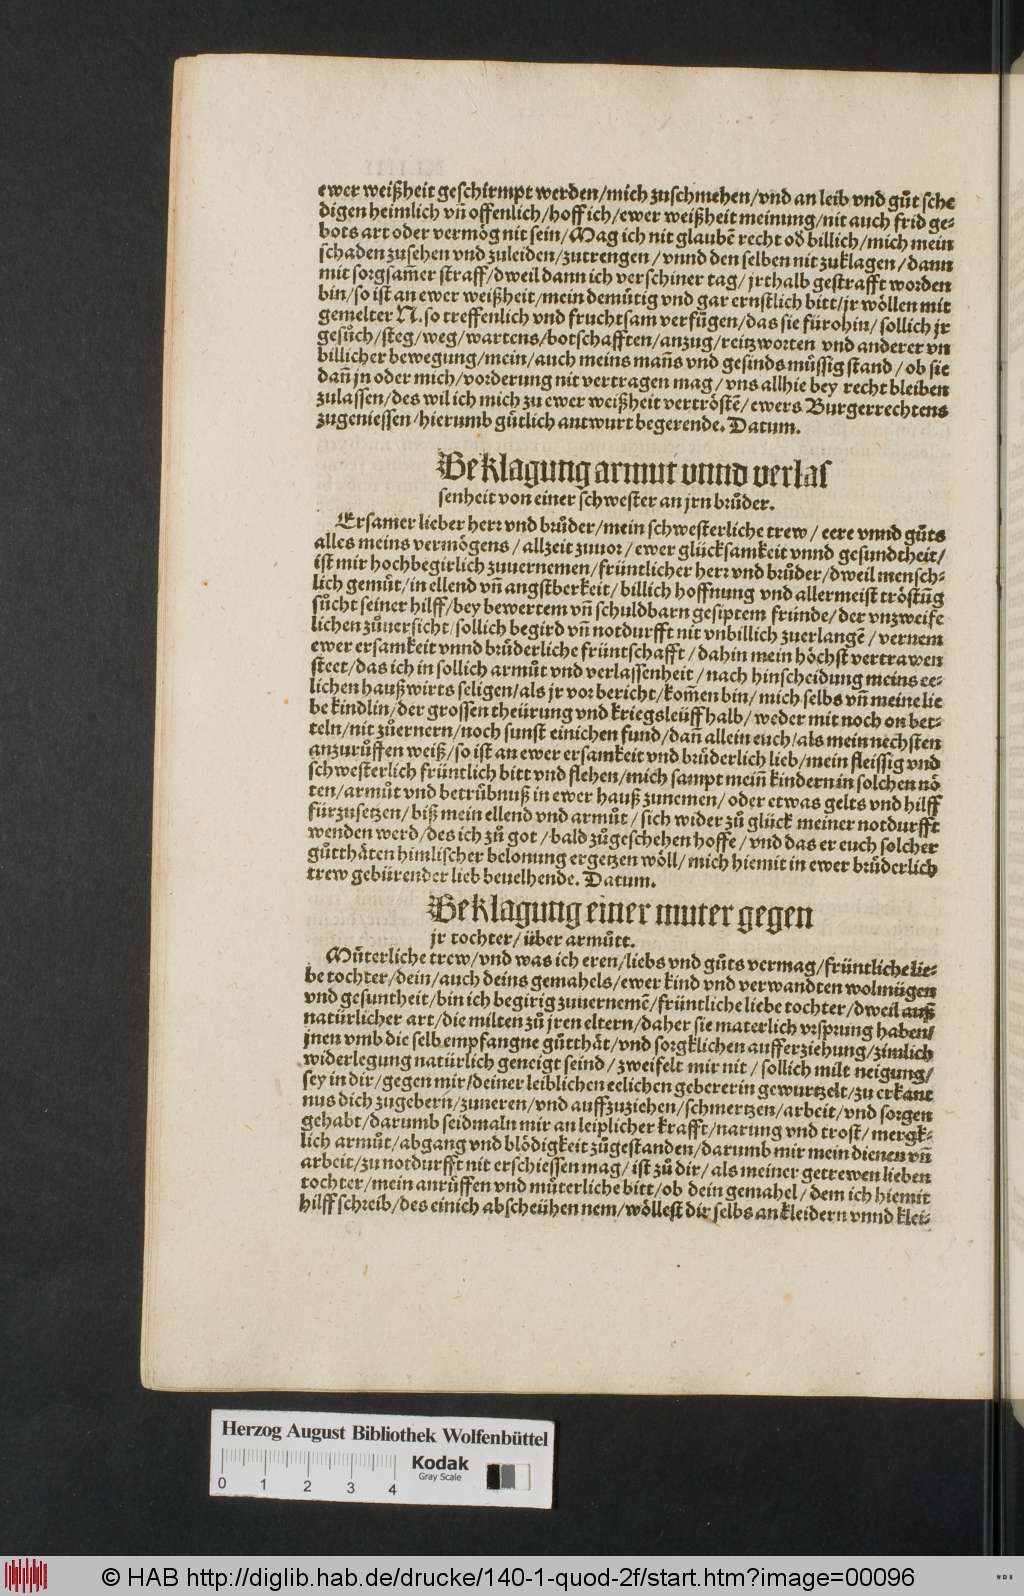 ewer weißheit geschirmpt werden/mich zuschmehen/vnd an leib vnd gůt sche
digen heimlich vñ offenlich/hoff ich/ewer weißheit meinung/nit auch frid ge⸗
bots art oder vermög nit sein/Mag ich nit glaubẽ recht oð billich/mich mein
schaden zusehen vnd zuleiden/zutrengen/vnnd den selben nit zuklagen/dann
mit sorgsam̃er straff/dweil dann ich verschiner tag/jrthalb gestrafft worden
bin/so ist an ewer weißheit/mein demůtig vnd gar ernstlich bitt/jr wöllen mit
gemelter N. so treffenlich vnd fruchtsam verfügen/das sie fürohin/sollich jr
gesůch/steg/weg/wartens/botschafften/anzug/reitzworten vnd anderer vn
billicher bewegung/mein/auch meins man̄s vnd gesinds müssig stand/ob sie
dañ jn oder mich/vorderung nit vertragen mag/vns allhie bey recht bleiben
zulassen/des wil ich mich zu ewer weißheit vertröstẽ/ewers Burgerrechtens
zugeniessen/hierumb gůtlich antwurt begerende. Datum.
Beklagung armut vnnd verlas
senheit von einer schwester an jrn brůder.
Ersamer lieber herr vnd brůder/mein schwesterliche trew/eere vnnd gůts
alles meins vermögens/allzeit zuuor/ewer glücksamkeit vnnd gesundtheit/
ist mir hochbegirlich zuuernemen/früntlicher herr vnd brůder/dweil mensch⸗
lich gemůt/in ellend vñ angstberkeit/billich hoffnung vnd allermeist tröstũg
sůcht seiner hilff/bey bewertem vñ schuldbarn gesiptem fründe/der vnzweife
lichen zůuersicht/sollich begird vñ notdurfft nit vnbillich zuerlangẽ/vernem
ewer ersamkeit vnnd brůderliche früntschafft/dahin mein höchst vertrawen
steet/das ich in sollich armůt vnd verlassenheit/nach hinscheidung meins ee⸗
lichen haußwirts seligen/als jr vor bericht/kom̃en bin/mich selbs vñ meine lie
be kindlin/der grossen theürung vnd kriegsleüff halb/weder mit noch on bet⸗
teln/nit zůernern/noch sunst einichen fund/dañ allein euch/als mein nechsten
anzurůffen weiß/so ist an ewer ersamkeit vnd brůderlich lieb/mein fleissig vnd
schwesterlich früntlich bitt vnd flehen/mich sampt meiñ kindern in solchen nö
ten/armůt vnd betrübnuß in ewer hauß zunemen/oder etwas gelts vnd hilff
fürzusetzen/biß mein ellend vnd armůt/sich wider zů glück meiner notdurfft
wenden werd/des ich zů got/bald zůgeschehen hoffe/vnd das er euch solcher
gůtthäten himlischer belonung ergetzen wöll/mich hiemit in ewer brůderlich
trew gebürender lieb beuelhende. Datum.
Beklagung einer muter gegen
jr tochter/über armůtt.
Můterliche trew/vnd was ich eren/liebs vnd gůts vermag/früntliche lie⸗
be tochter/dein/auch deins gemahels/ewer kind vnd verwandten wolmügen
vnd gesuntheit/bin ich begirig zuuernemẽ/früntliche liebe tochter/dweil auß
natürlicher art/die milten zů jren eltern/daher sie materlich vrsprung haben/
jnen vmb die selb empfangne gůtthät/vnd sorgklichen aufferziehung/zimlich
widerlegung natürlich geneigt seind/zweifelt mir nit/sollich milt neigung/
sey in dir/gegen mir/deiner leiblichen eelichen gebererin gewurtzelt/zu erkant
nus dich zugebern/zuneren/vnd auffzuziehen/schmertzen/arbeit/vnd sorgen
gehabt/darumb seidmaln mir an leiplicher krafft/narung vnd trost/mergk⸗
lich armůt/abgang vnd blödigkeit zůgestanden/darumb mir mein dienen vñ
arbeit/zu notdurfft nit erschiessen mag/ist zů dir/als meiner getrewen lieben
tochter/mein anrůffen vnd můterliche bitt/ob dein gemahel/dem ich hiemit
hilff schreib/des einich abscheühen nem/wöllest dir selbs an kleidern vnnd klei⸗
Herzog August Bibliothek Wolfenbüttel
Kodak
Gray Scale
0 1 2 3 4
© HAB http://diglib.hab.de/drucke/140-1-quod-2f/start.htm?image=00096